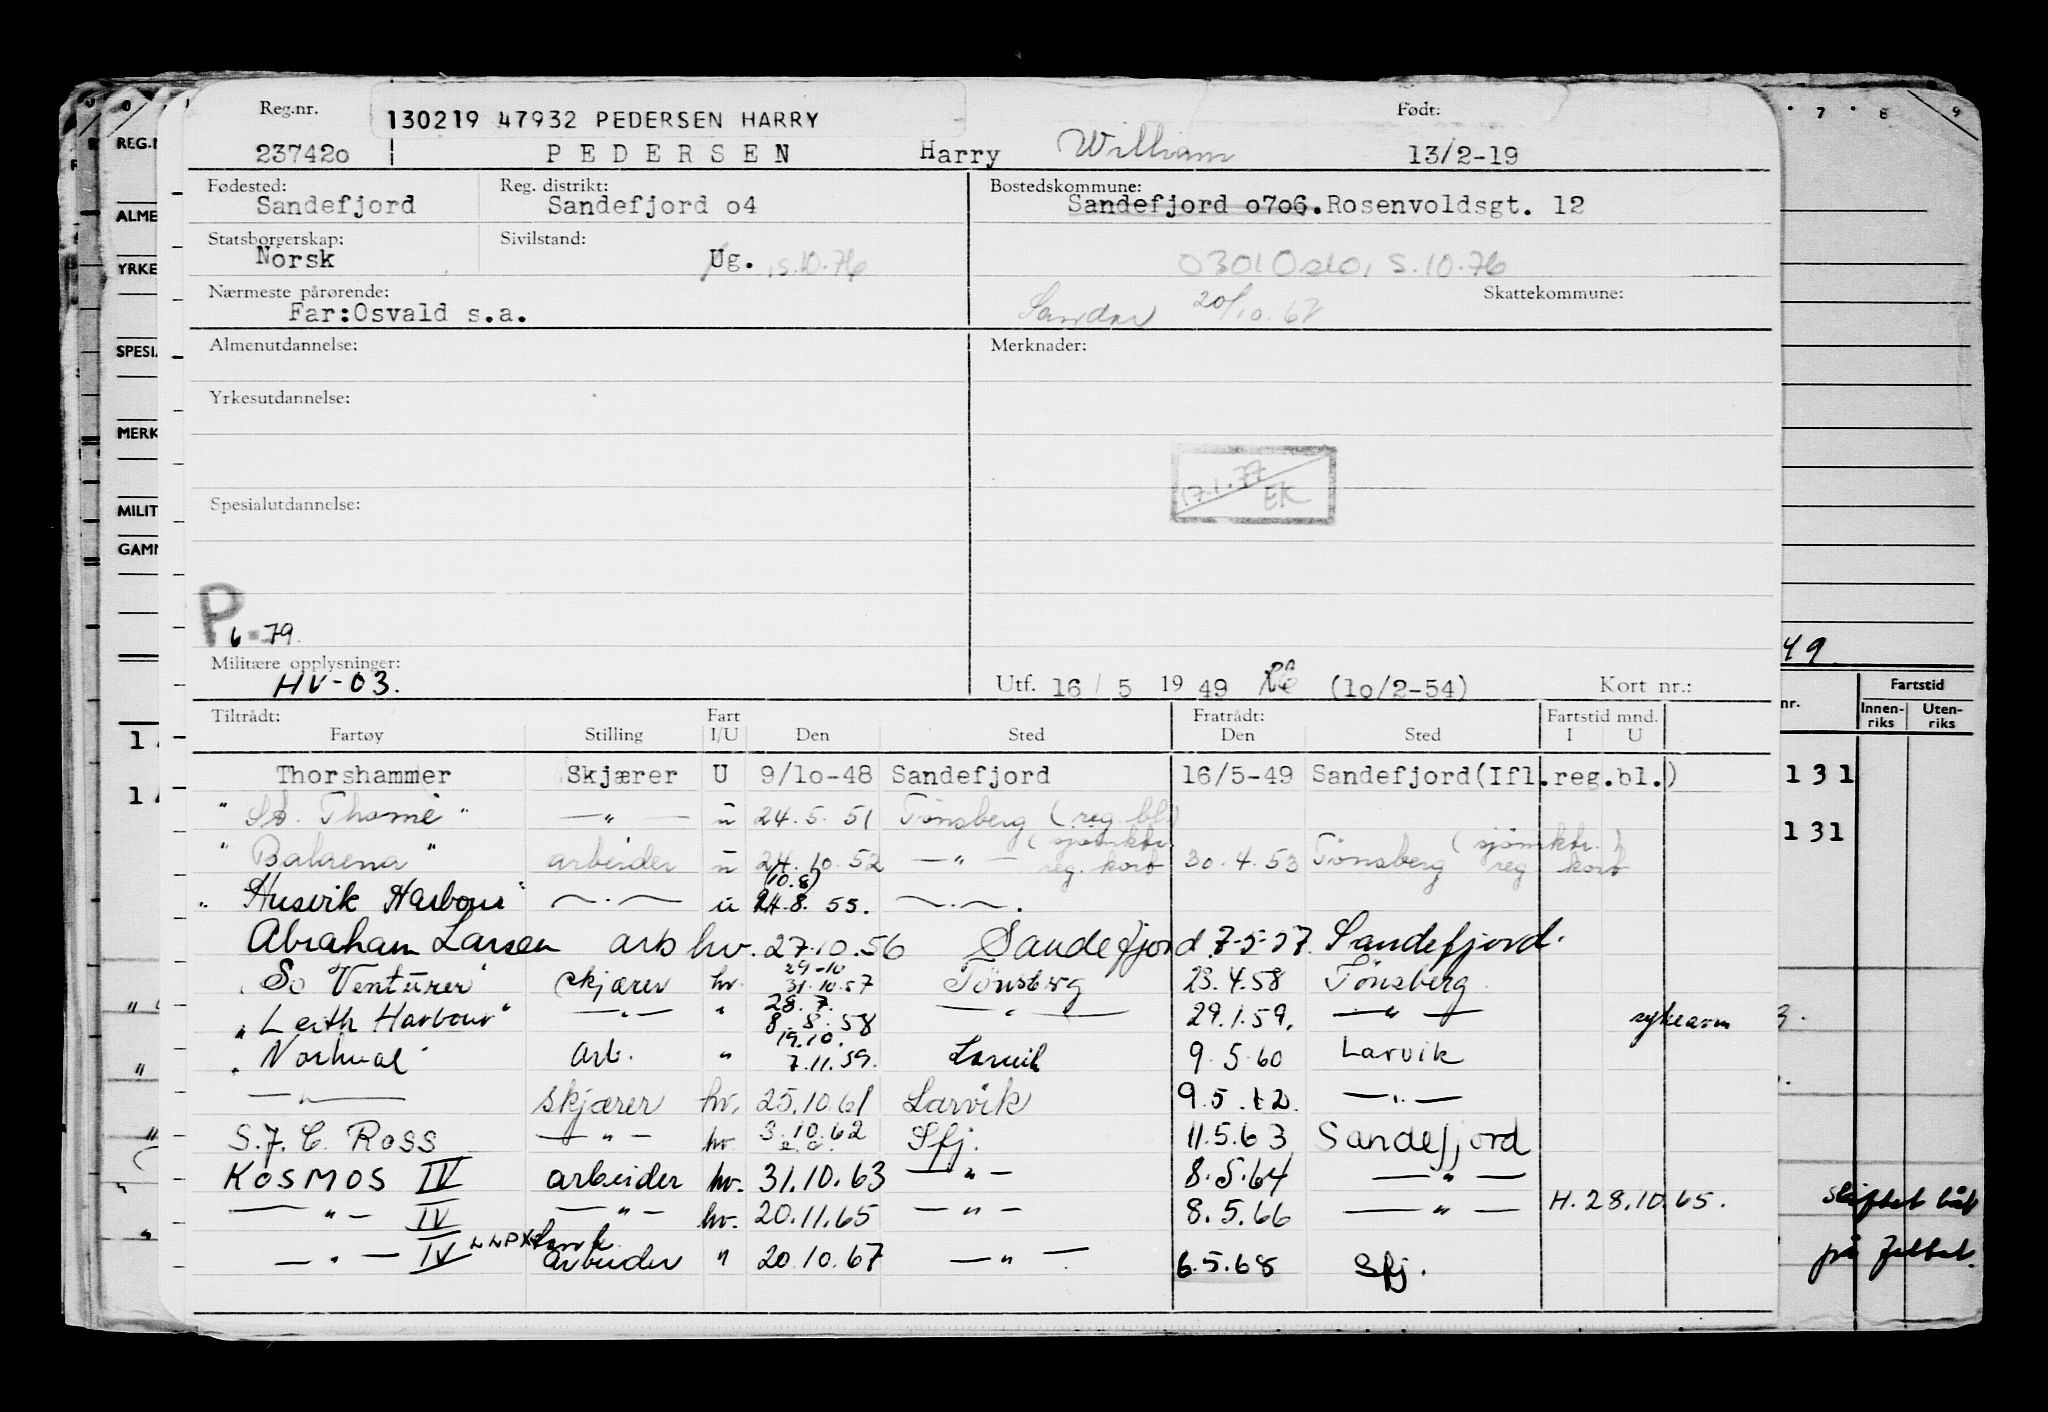 Reg.nr. 130219 47932 PEDERSEN HARRY Født:
237420 P E D E R S E N Harry William 13/2-19
Fødested: Reg. distrikt: Bostedskommune:
Sandefjord Sandefjord o4 Sandefjord o7o6. Rosenvoldsgt. 12
Statsborgerskap: Sivilstand:
Norsk Ug. 5.10.76 0301 Oslo, 5.10.76
Nærmeste pårørende: Skattekommune:
Far:Osvald s.a. Sandar 20/10.67
Almenutdannelse: Merknader:
Yrkesutdannelse:
17.1.77 EK
Spesialutdannelse:
P 6.79.
Militære opplysninger:
HV-03. Utf. 16 / 5 19 49 (1o/2-54) Kort nr.:
Tiltrådt: Fart Fratrådt: Fartstid mnd.
Fartøy Stilling I/U Den Sted Den Sted I U
Thorshammer Skjærer U 9/1o-48 Sandefjord 16/5-49 Sandefjord(Ifl.reg.bl.)
" St. Thomé " — " — u 24.5.51 Tönsberg (reg bl.)
" Balaena " arbeider u 24.10.52 — " — (sjömktr. reg. kort 30.4.53 Tönsberg (sjömktr.) reg kort
" Husvik Harbour" — " — u (10.8) 24.8.55. — " — .
Abraham Larsen arb hv. 27.10.56 Sandefjord 7-5-57 Sandefjord.
So Venturer skjærer hv. 29-10 31.10.57 Tönsberg 23.4.58 Tönsberg
" Leith Harbour" — " — " 28.7. 8.8.58 — " — 29.1.59. — " —
" Norhval " Arb. " 19.10. 7.11.59. Larvik 9.5.60 Larvik
— " — skjærer hv. 25.10.61 Larvik 9.5.62. — " —
S.J. C. Ross — " — hv. 3.10.62 Sfj. 11.5.63 Sandefjord
KOSMOS IV arbeider hv. 31.10.63 — " — 8.5.64 — " —
— " — IV — " — hv. 20.11.65 — " — 8.5.66 — " — H.28.10.65.
— " — IV arbeider " 20.10.67 — " — 6.5.68 Sfj.
REG.N
ALME
YRKE
SPESIA
MERK
MILIT
GAMM
7 8 9
49.
nr. Fartstid
Innen-riks Uten-riks
131
131
skiftet båt
på feltet.